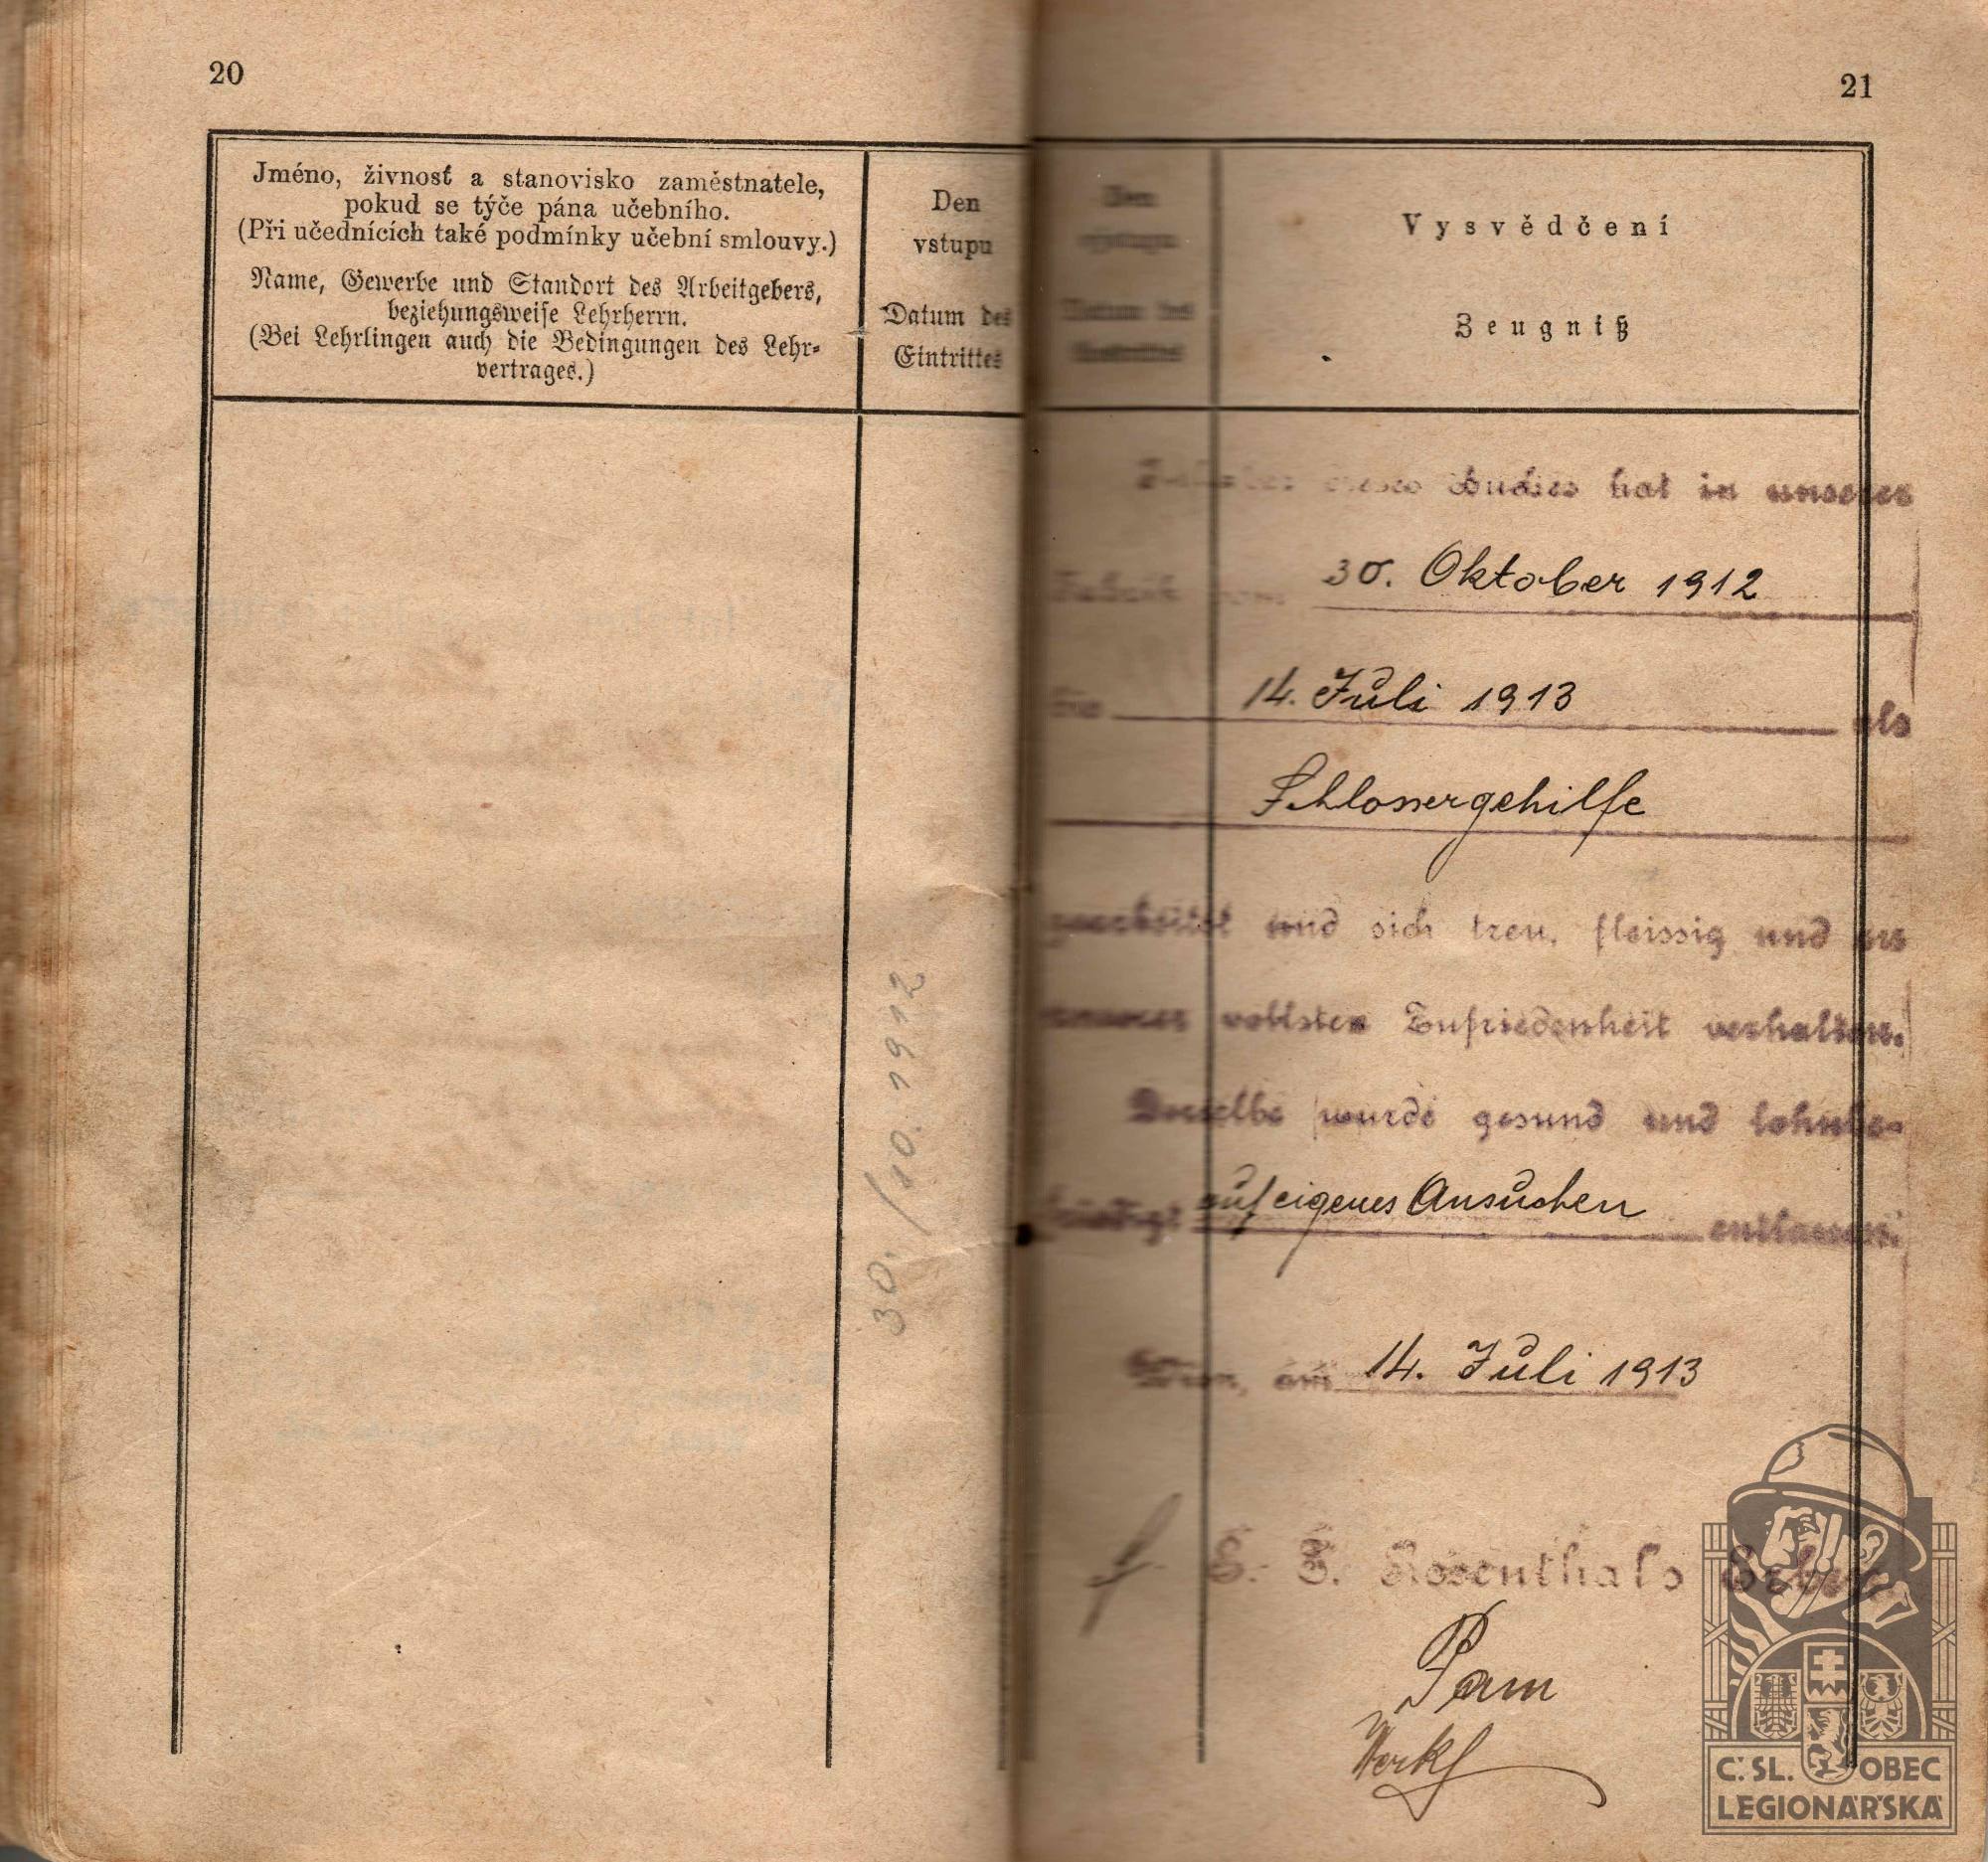 20
Jméno, živnosť a stanovisko zaměstnatele,
pokud se týče pána učebního.
(Při učednících také podmínky učební smlouvy.)
Name, Gewerbe und Standort des Arbeitgebers,
beziehungsweise Lehrherrn.
(Bei Lehrlingen auch die Bedingungen des Lehr-
vertrages.)
Den
vstupu
Datum des
Eintrittes
30./10.1912
21
Den
výstupu
Datum des
Austrittes
Vysvědčení
Zeugniß
Inhaber dieses Buches hat in unserer
Fabrik vom 30. Oktober 1912
bis 14. Juli 1913 als
Schlossergehilfe
gearbeitet und sich treu, fleissig und zu
unserer vollsten Zufriedenheit verhalten.
Derselbe wurde gesund und lohnbe-
friedigt auf eigenes Ansuchen entlassen.
Wien, am 14. Juli 1913
Rosenthals Erben
Werkf
Č. SL. OBEC
LEGIONÁŘSKÁ